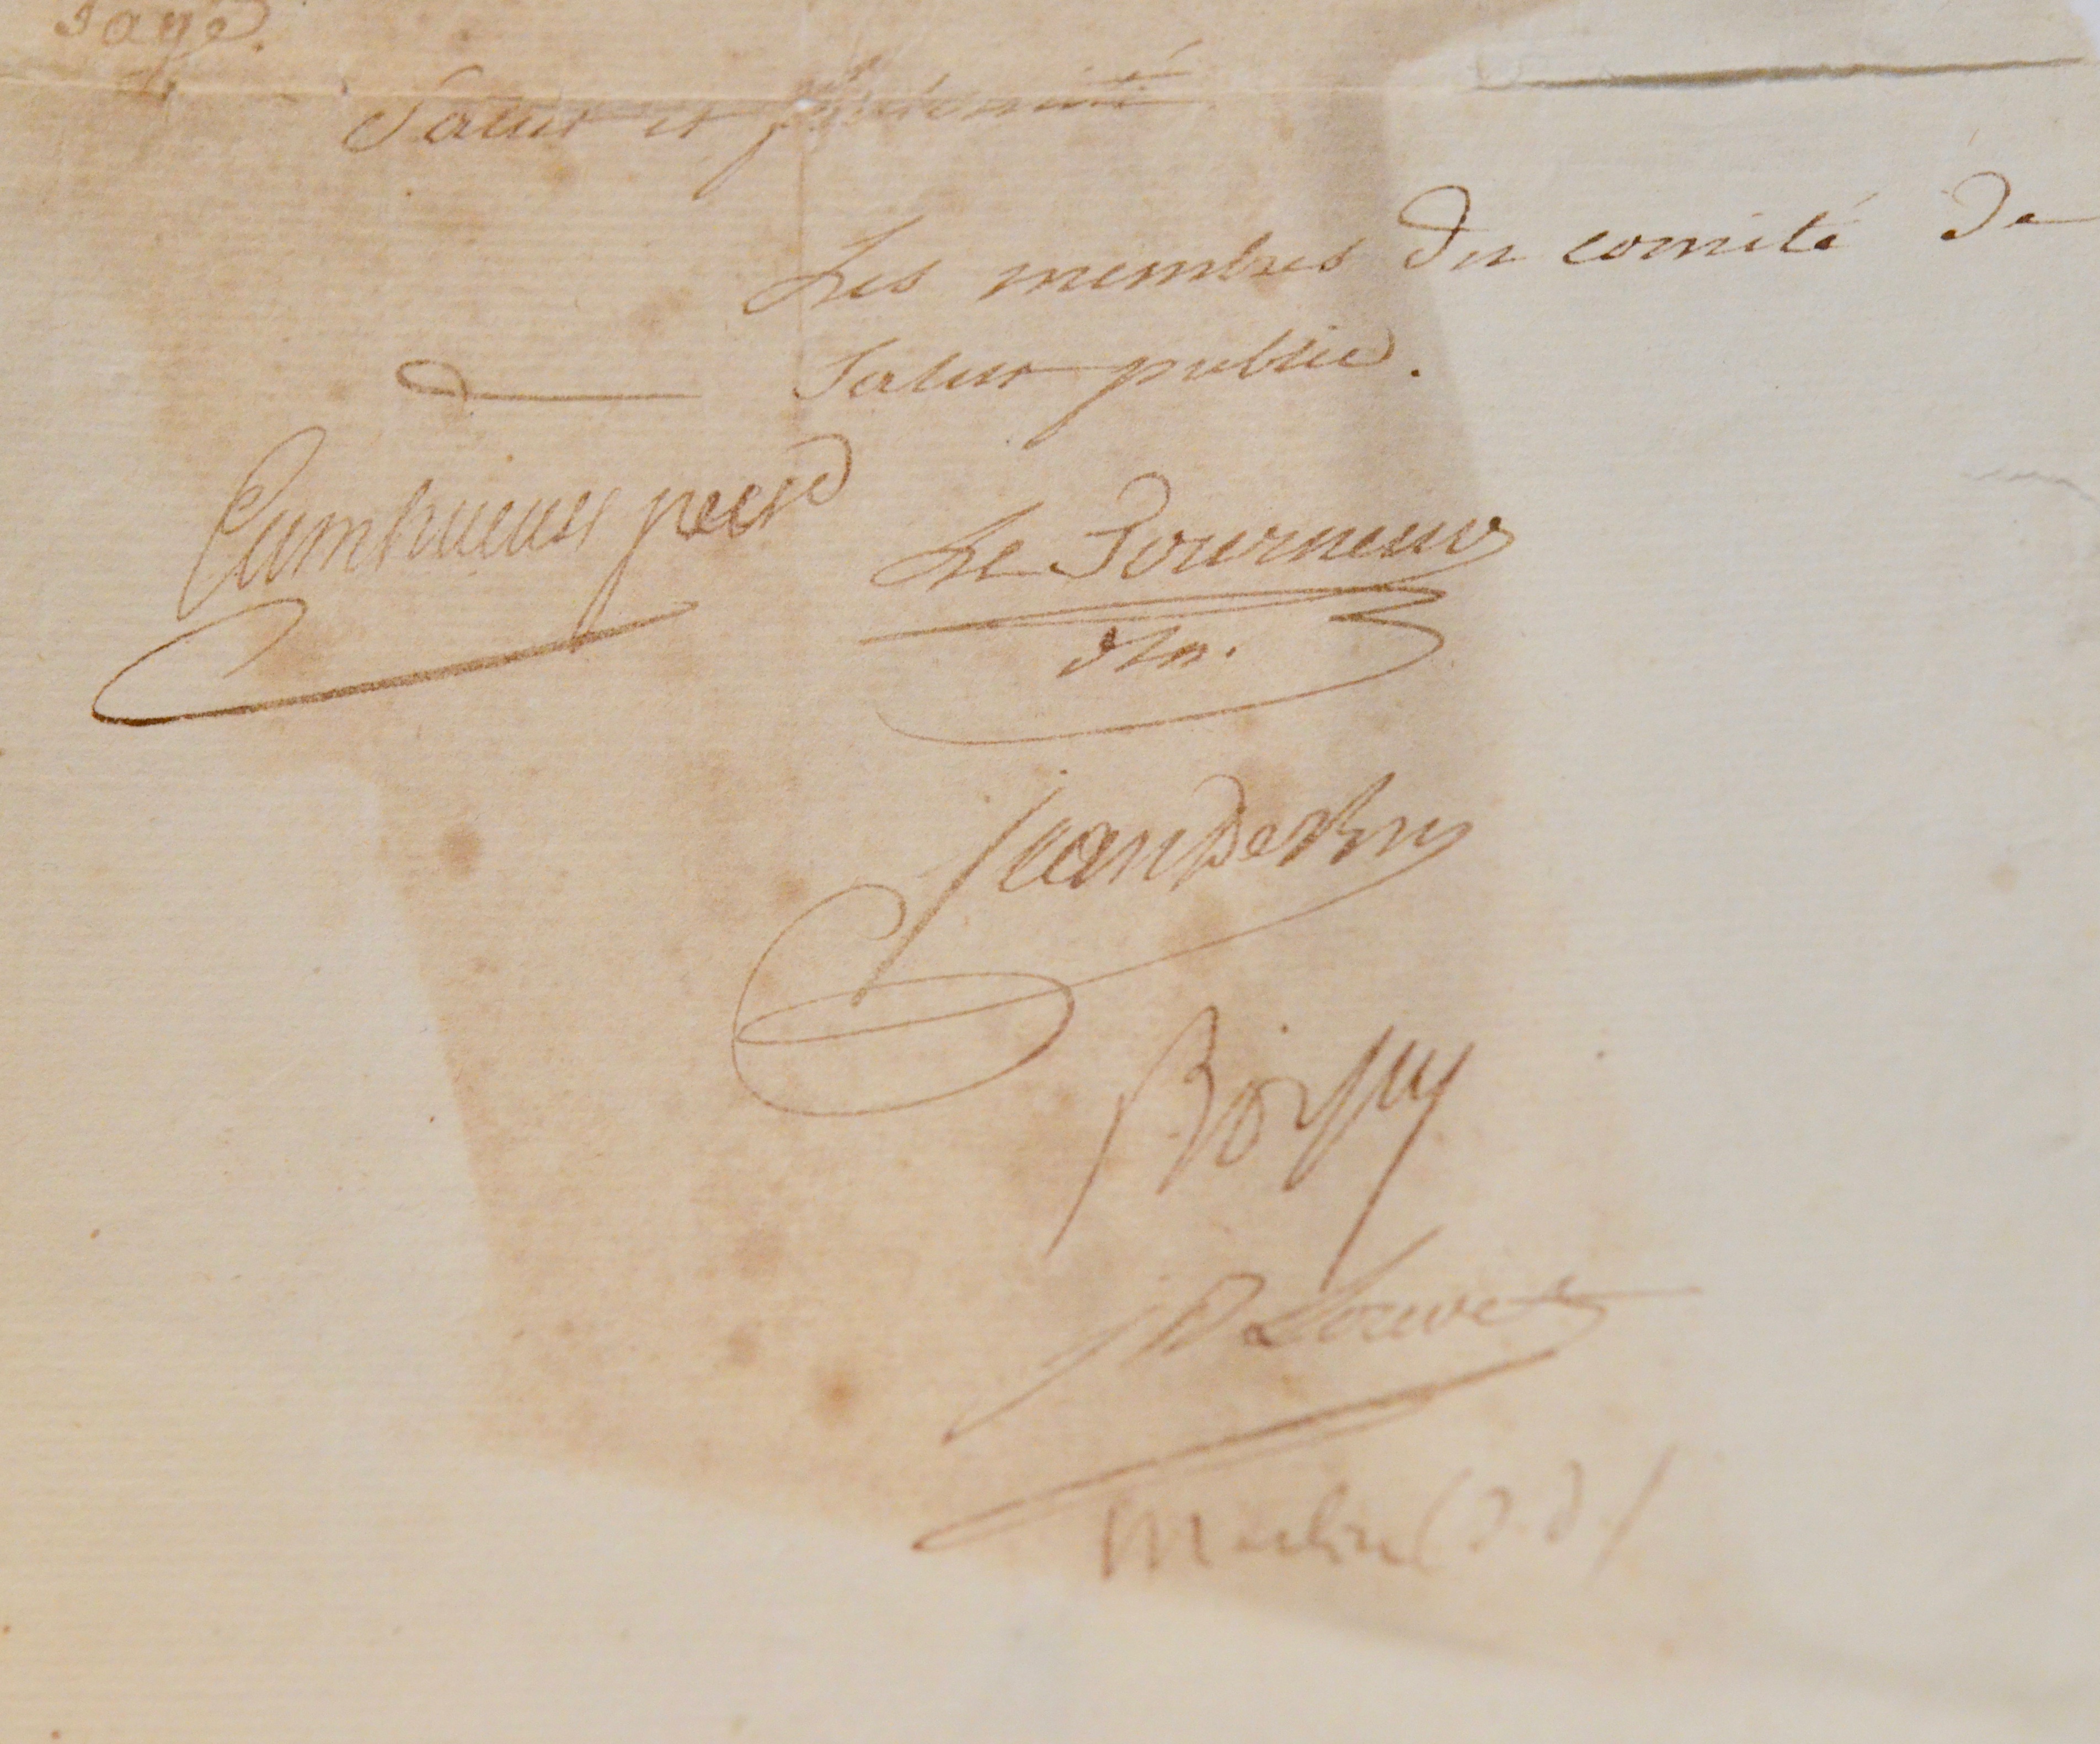 Salut et fraternité
Les membres du comité de
Salut public.
Cambaceres presid
Le Tourneur
Jean DeBry
Boissy
JB Louvet
Merlin (d. d.)